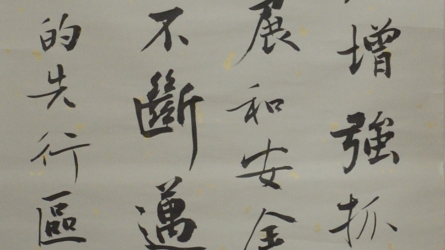 增強抓
展和安全
不斷邁
的先行區